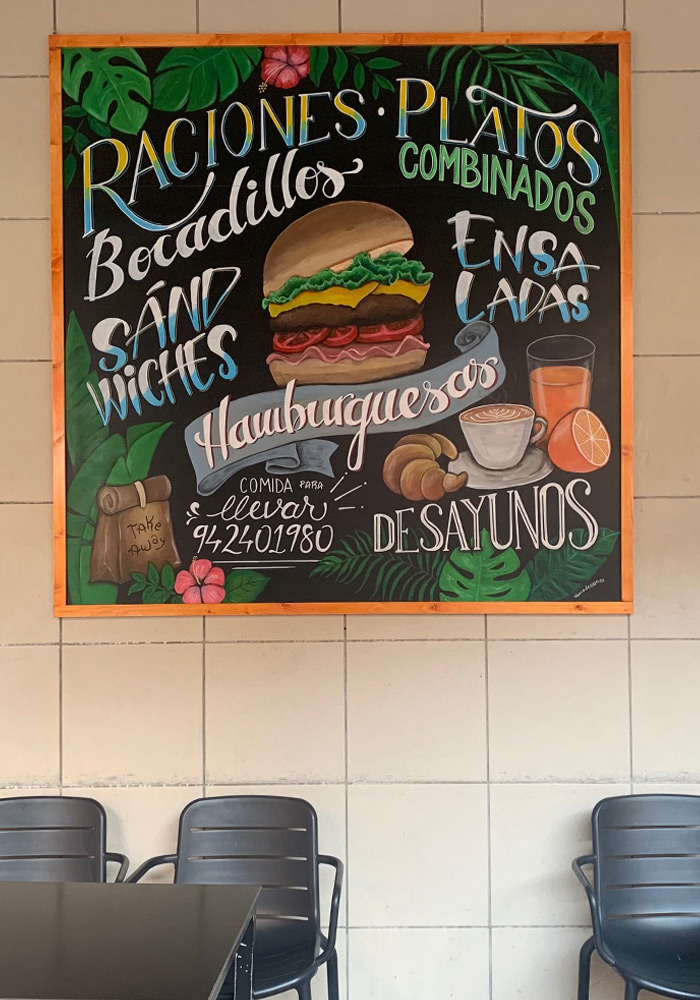 RACIONES · PLATOS
COMBINADOS
Bocadillos
ENSA
LADAS
SÁND
WICHES
Hamburguesas
COMIDA PARA
llevar
942401980
DESAYUNOS
TAKE
AWAY